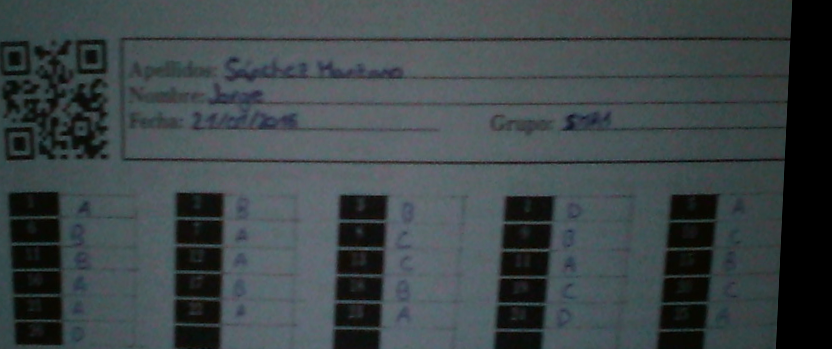 Apellidos: Sánchez Manzano
Nombre: Jorge
Fecha: 21/01/2016 Grupo: SMR1
1 A 2 B 3 B 4 D 5 A
6 B 7 A 8 C 9 B 10 C
11 B 12 A 13 C 14 A 15 B
16 A 17 B 18 B 19 C 20 C
21 A 22 A 23 A 24 D 25
26 D